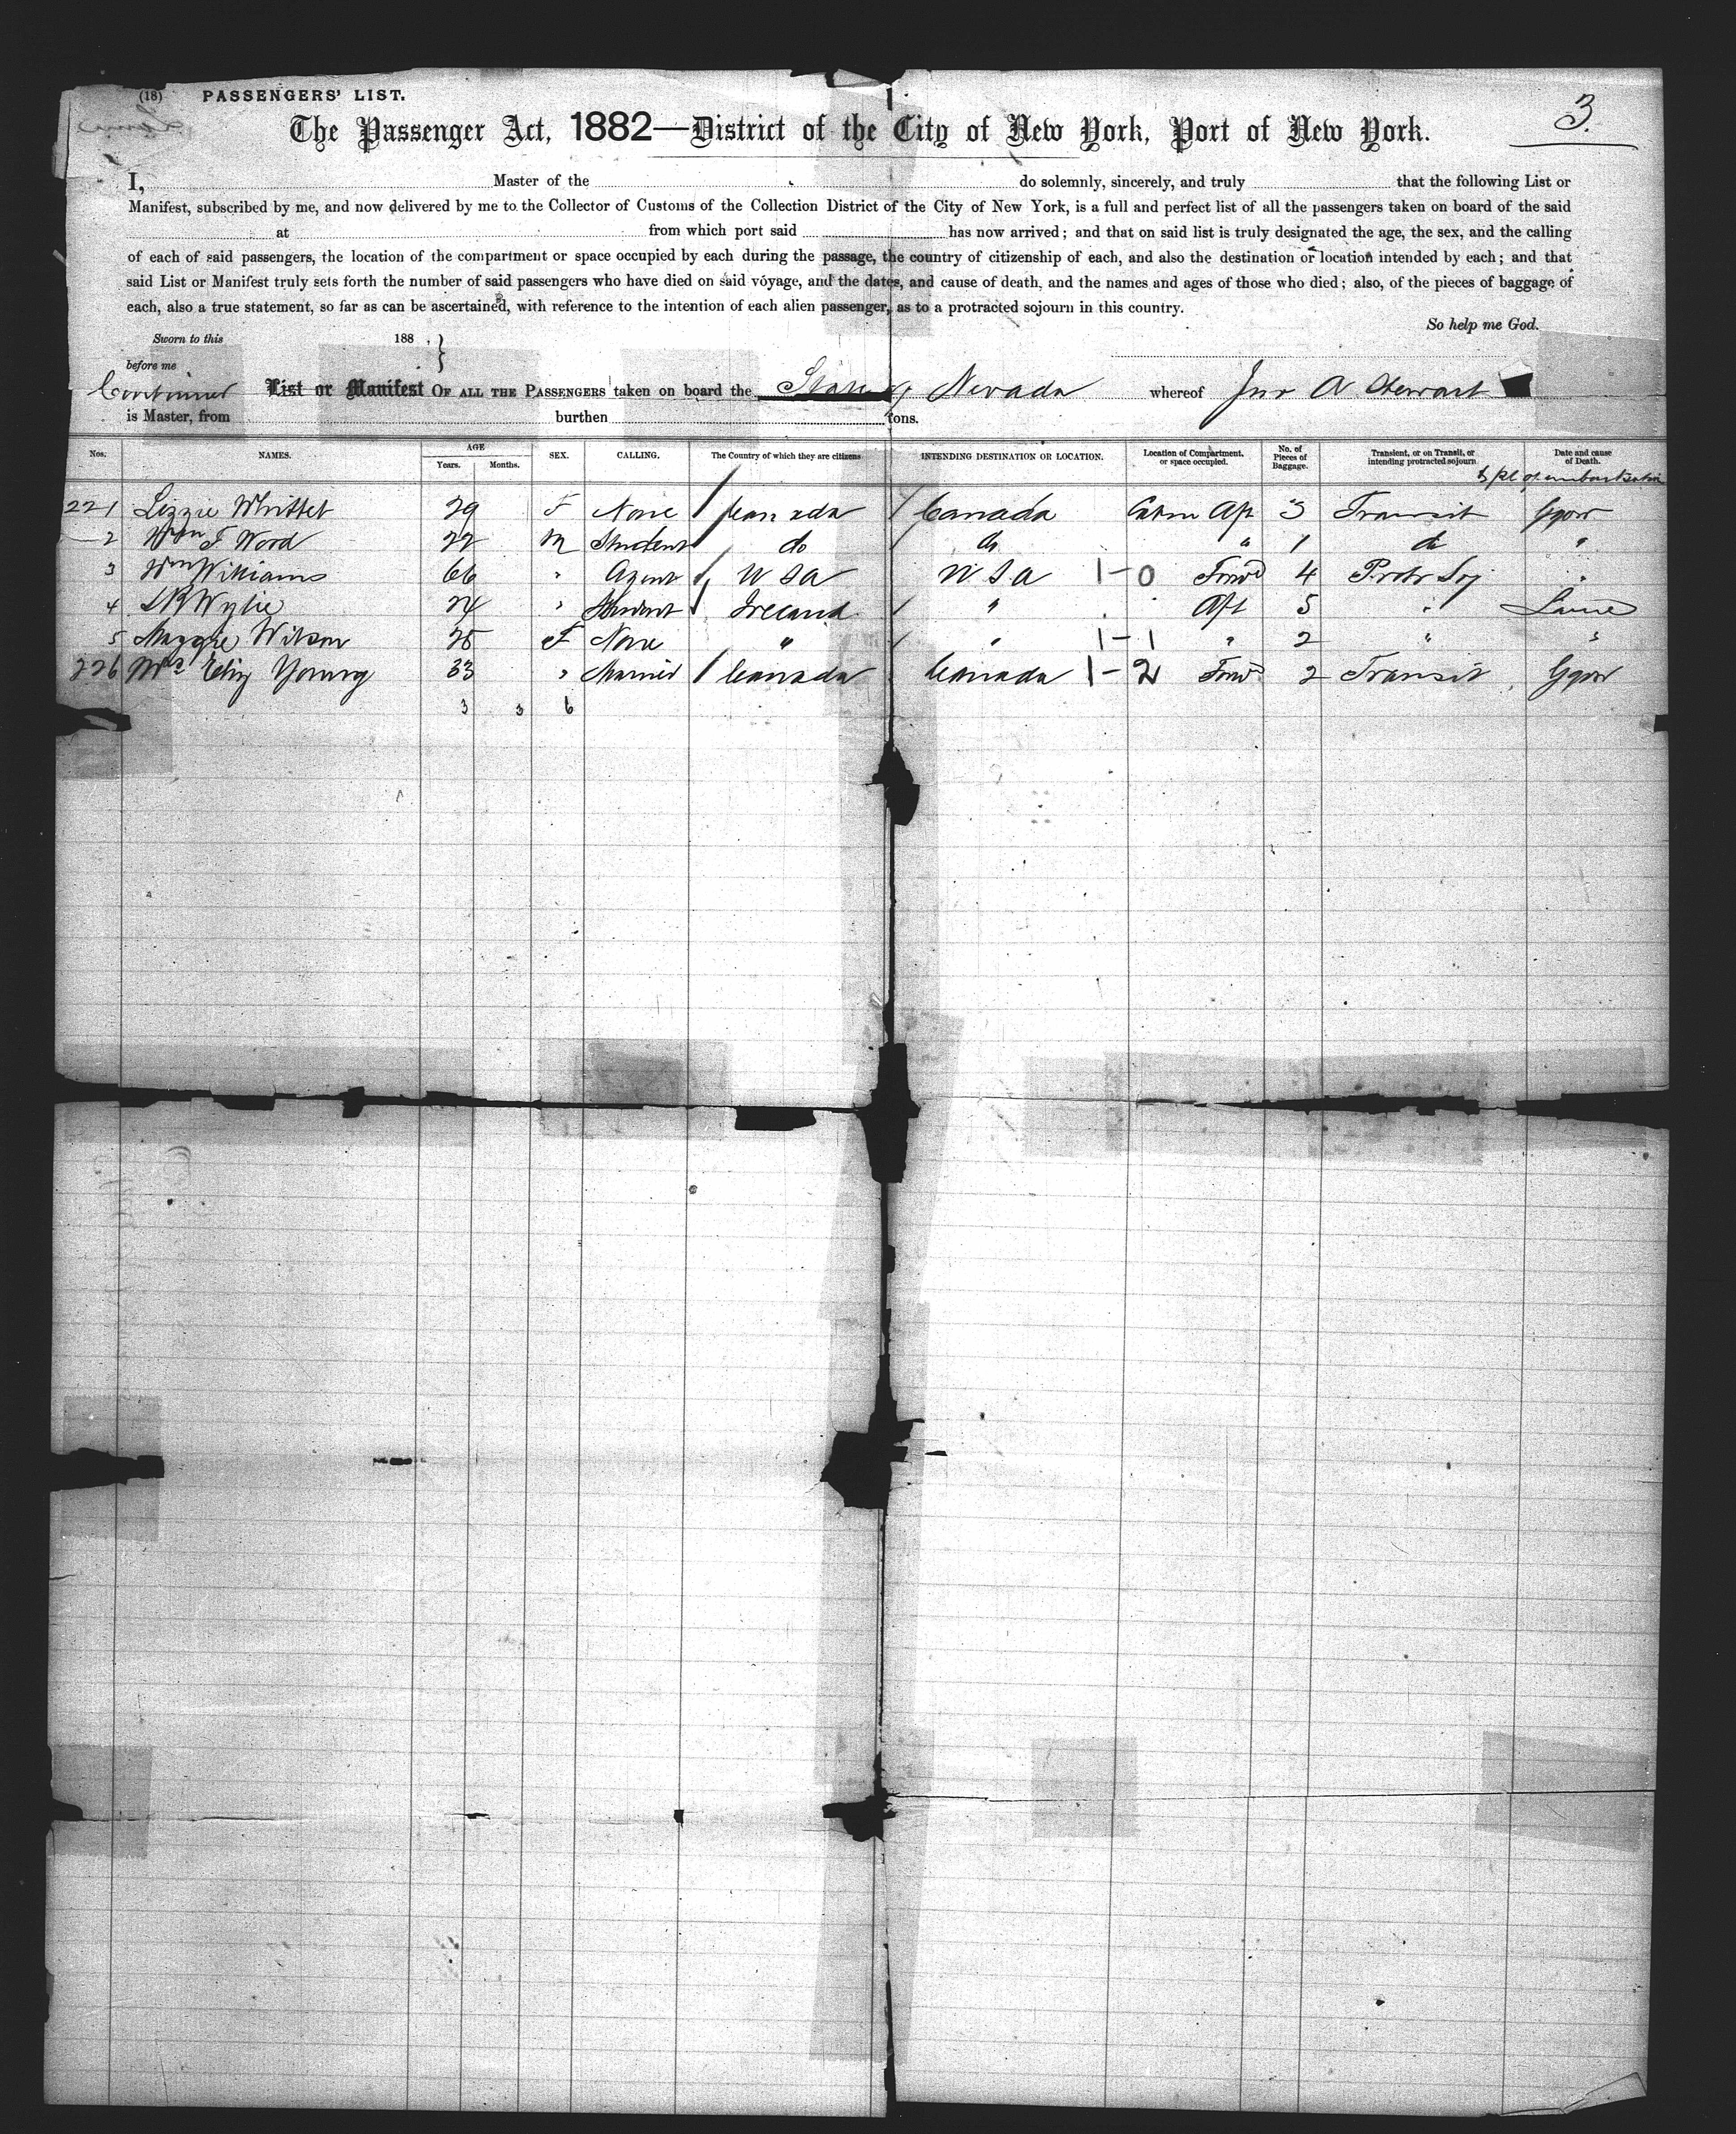 (18) PASSENGERS' LIST.
3.
The Passenger Act, 1882—District of the City of New York, Port of New York.
I, Master of the do solemnly, sincerely, and truly that the following List or
Manifest, subscribed by me, and now delivered by me to the Collector of Customs of the Collection District of the City of New York, is a full and perfect list of all the passengers taken on board of the said
at from which port said has now arrived; and that on said list is truly designated the age, the sex, and the calling
of each of said passengers, the location of the compartment or space occupied by each during the passage, the country of citizenship of each, and also the destination or location intended by each; and that
said List or Manifest truly sets forth the number of said passengers who have died on said voyage, and the dates, and cause of death, and the names and ages of those who died; also, of the pieces of baggage of
each, also a true statement, so far as can be ascertained, with reference to the intention of each alien passenger, as to a protracted sojourn in this country.
So help me God.
Sworn to this 188 , }
before me
Continued List or Manifest OF ALL THE PASSENGERS taken on board the State of Nevada whereof Jno A Stewart
is Master, from burthen tons.
Nos. NAMES. AGE Years. Months. SEX. CALLING. The Country of which they are citizens INTENDING DESTINATION OR LOCATION. Location of Compartment, or space occupied. No. of Pieces of Baggage. Transient, or on Transit, or intending protracted sojourn. Date and cause of Death.
& pl of embarkation
221 Lizzie Whittet 29 F None Canada Canada Cabin Aft 3 Transit Ggow
2 Wm F Wood 22 M Student do do " 1 do "
3 Wm Williams 66 " Agent U S A U S A 1-0 Forwd 4 Protr Soj "
4 Wylie 24 " Student Ireland " Aft 5 " Larne
5 Maggie Wilson 25 F None " " 1-1 " 2 " "
226 Mrs Eliz Young 33 " Married Canada Canada 1-2 Forwd 2 Transit Ggow
3 3 6